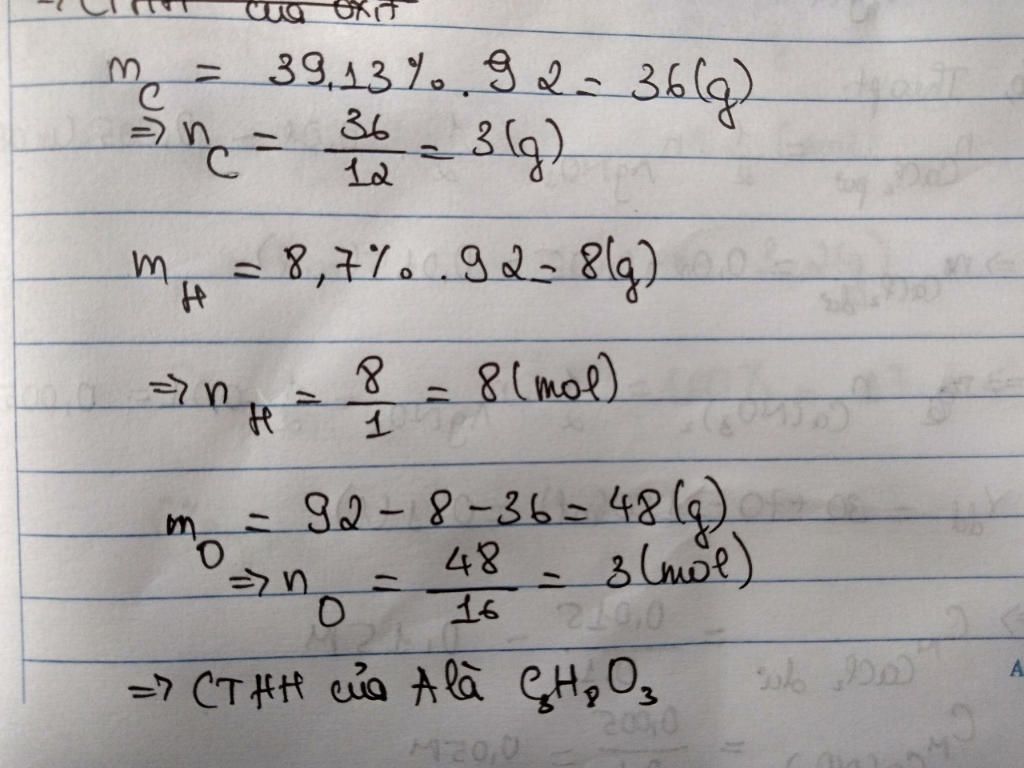 => CTHH của oxit
m_C = 39,13% . 92 = 36(g)
=> n_C = 36/12 = 3(g)
m_H = 8,7% . 92 = 8(g)
=> n_H = 8/1 = 8(mol)
m_O = 92 - 8 - 36 = 48(g)
=> n_O = 48/16 = 3(mol)
=> CTHH của A là C₃H₈O₃
A